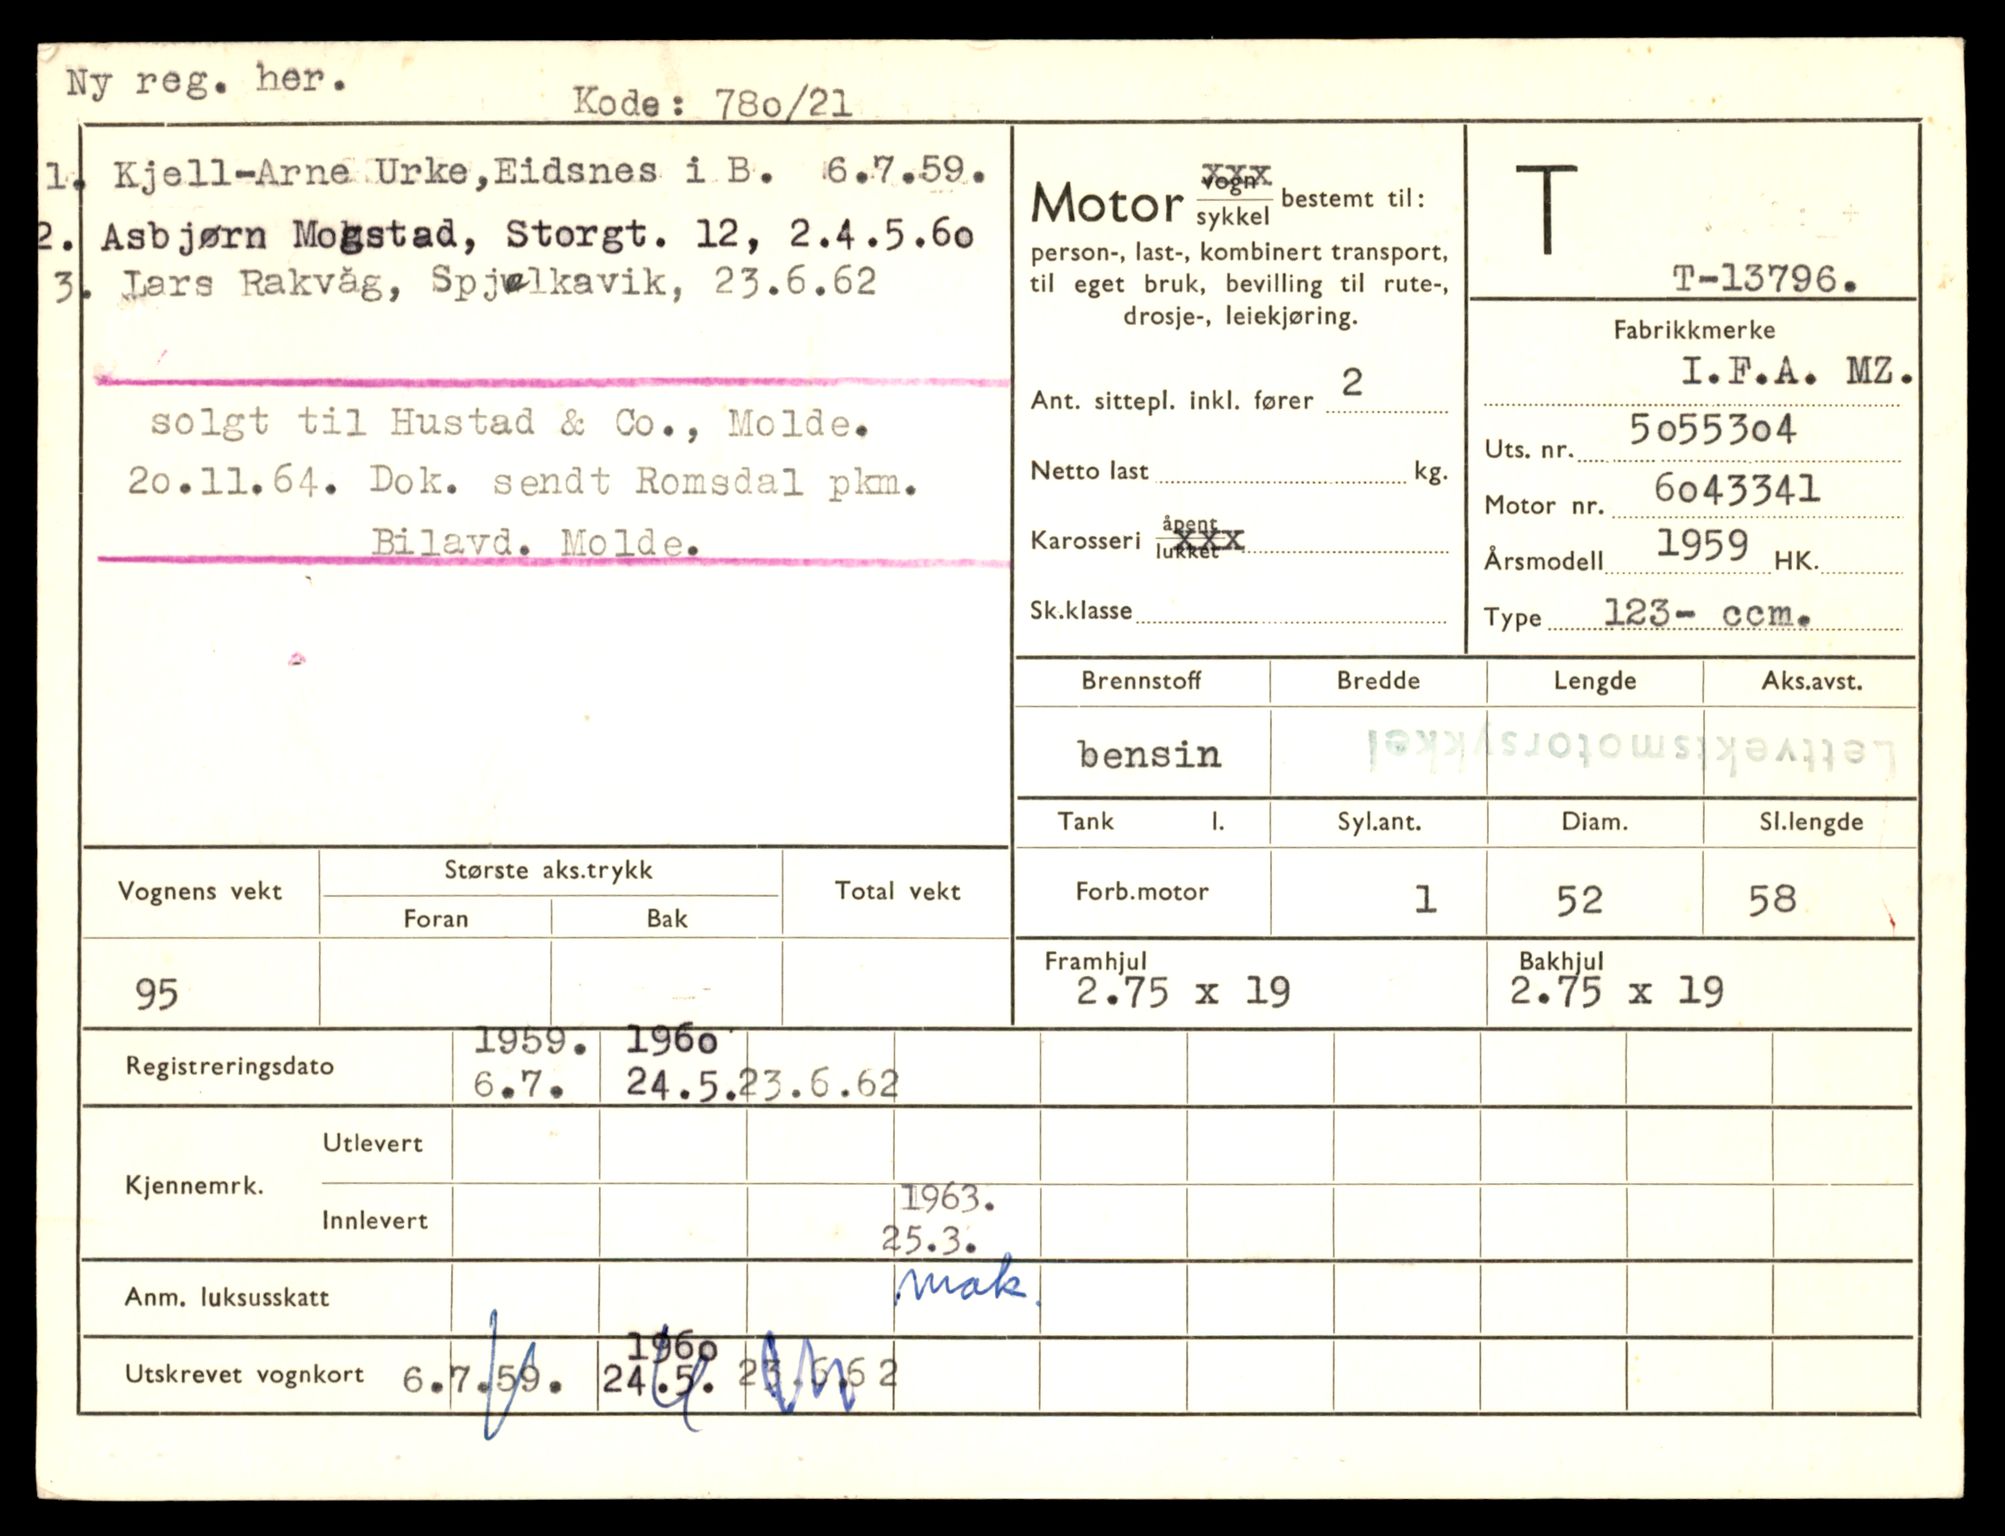 Ny reg. her.
Kode: 780/21
1. Kjell-Arne Urke,Eidsnes i B. 6.7.59.
2. Asbjørn Mogstad, Storgt. 12, 2.4.5.60
3. Lars Rakvåg, Spjelkavik, 23.6.62
solgt til Hustad & Co., Molde.
20.11.64. Dok. sendt Romsdal pkm.
Bilavd. Molde.
Motor vogn xxx sykkel bestemt til:
person-, last-, kombinert transport,
til eget bruk, bevilling til rute-,
drosje-, leiekjøring.
Ant. sittepl. inkl. fører 2
Netto last kg.
Karosseri åpent lukket xxx
Sk.klasse
T
T-13796.
Fabrikkmerke
I.F.A. MZ.
Uts. nr. 5055304
Motor nr. 6043341
Årsmodell 1959 HK.
Type 123- ccm.
Brennstoff Bredde Lengde Aks.avst.
bensin Lettvektsmotorsykkel
Tank l. Syl.ant. Diam. Sl.lengde
Forb.motor 1 52 58
Framhjul Bakhjul
2.75 x 19 2.75 x 19
Vognens vekt Største aks.trykk Total vekt
Foran Bak
95
1959. 1960
Registreringsdato 6.7. 24.5. 23.6.62
Utlevert
Kjennemrk.
1963.
Innlevert 25.3.
Anm. luksusskatt mak.
1960
Utskrevet vognkort 6.7.59. 24.5. 23.6.62